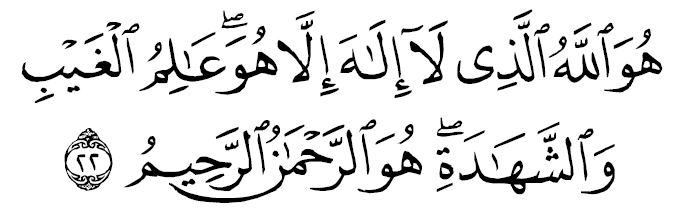 هُوَ ٱللَّهُ ٱلَّذِى لَآ إِلَـٰهَ إِلَّا هُوَ ۖ عَـٰلِمُ ٱلْغَيْبِ
وَٱلشَّهَـٰدَةِ ۖ هُوَ ٱلرَّحْمَـٰنُ ٱلرَّحِيمُ ٢٢